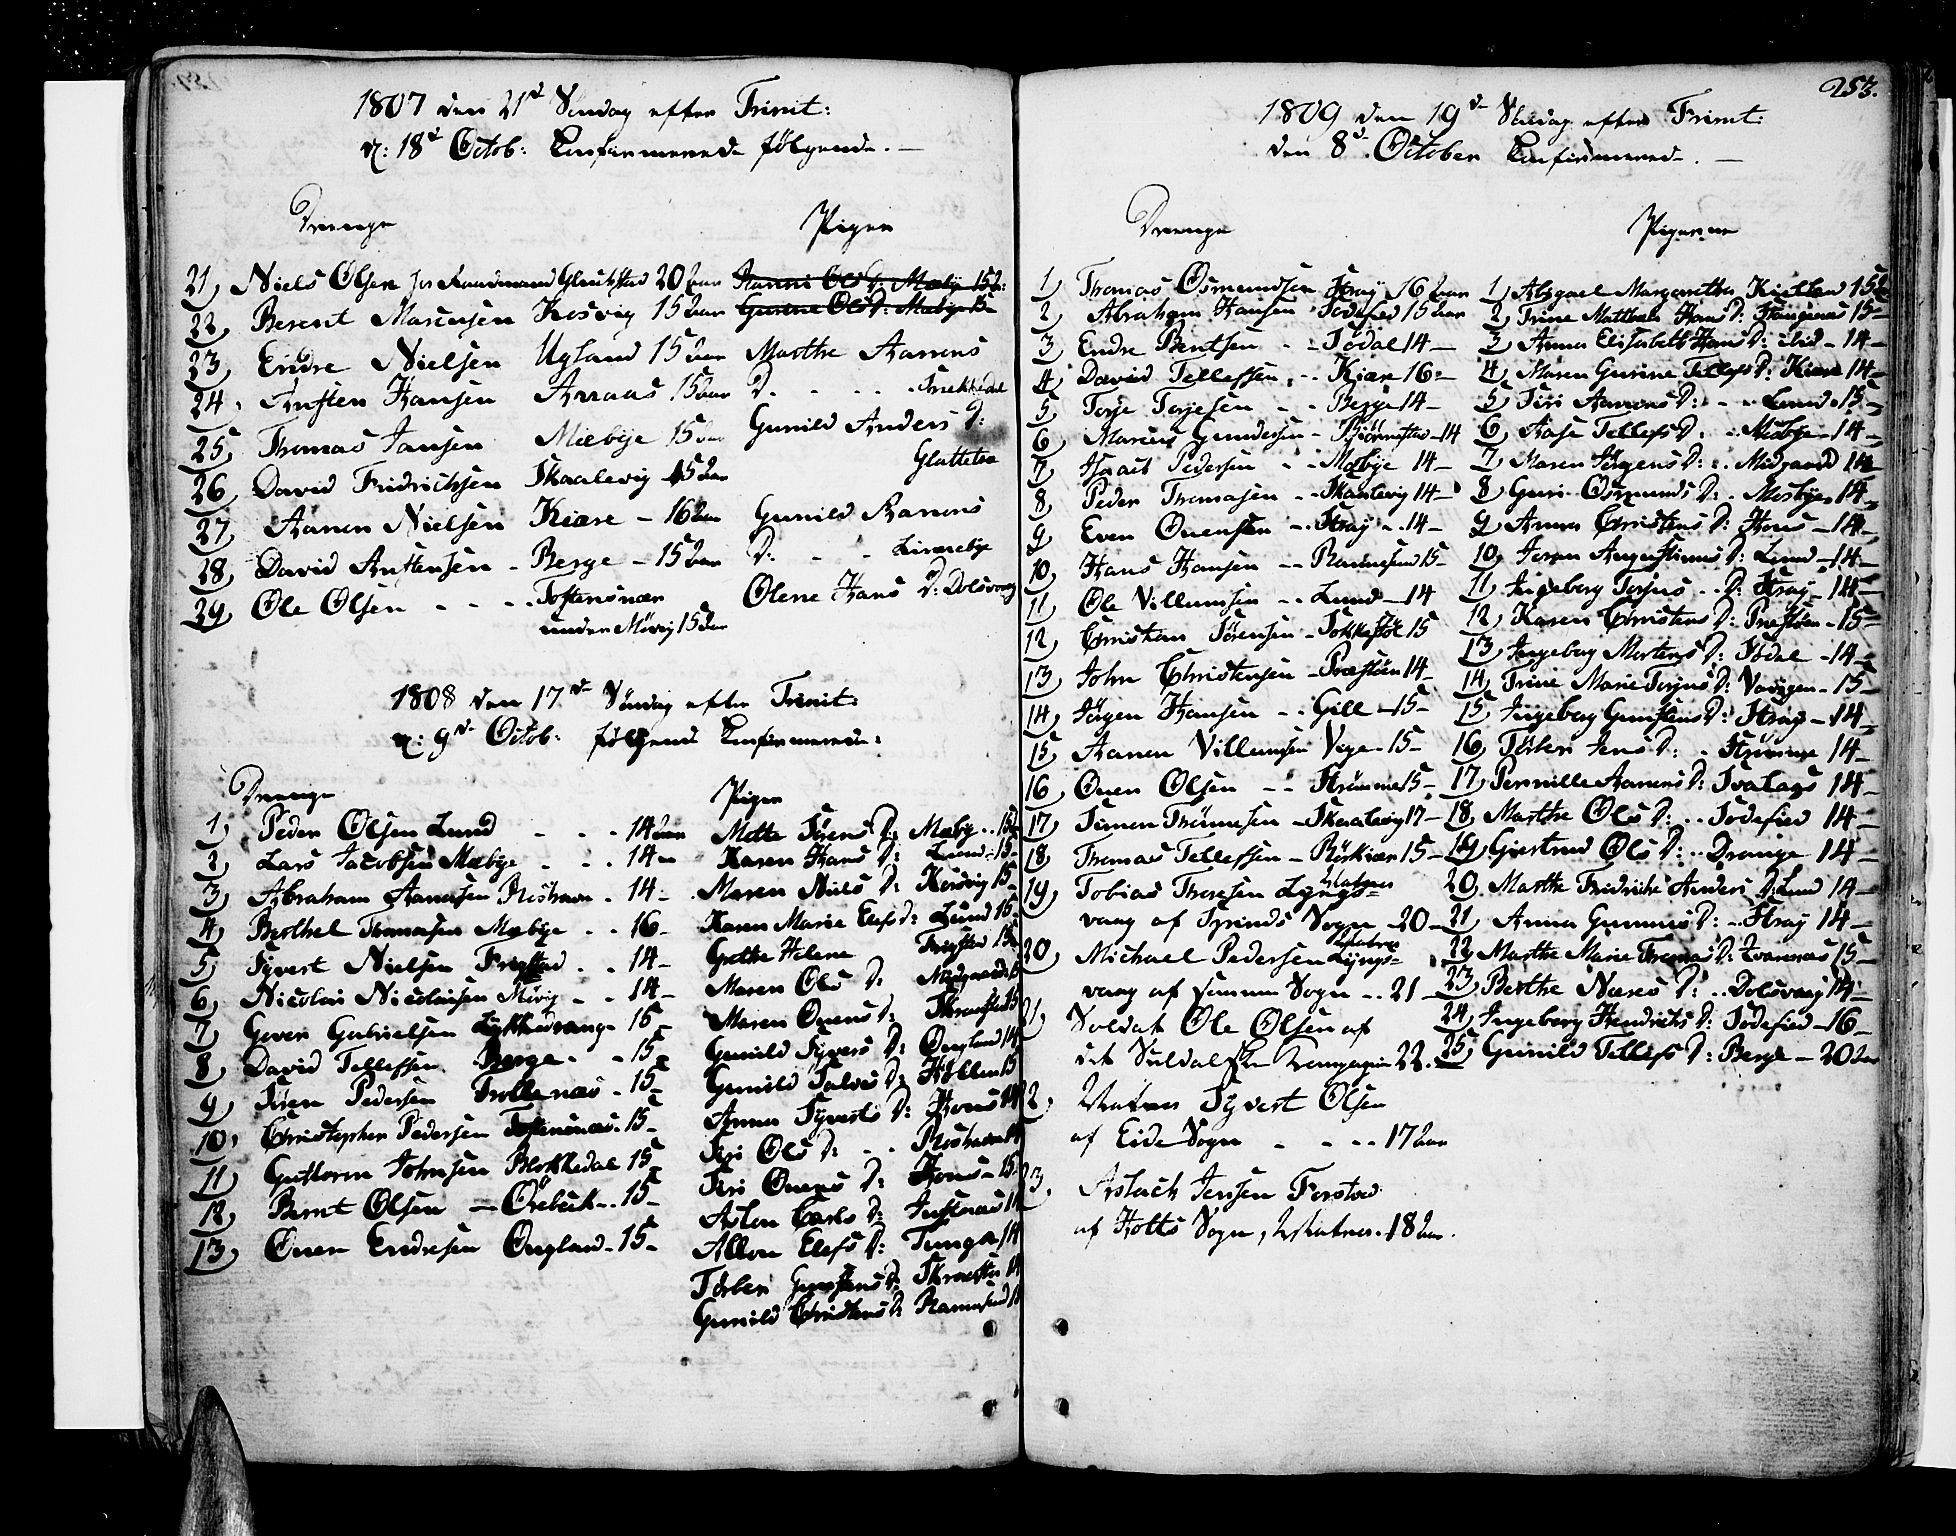 1807 den 21d Søndag efter Trinit:
d: 18d Octob: Confirmerede følgende. —
Drenge
21) Niels Olsen 20 aar
22) Berent Martensen Kosvig 15 aar
23) Endre Nielsen Ugland 15 aar
24) Austen Hansen Aaraas 15 aar
25) Thomas Jansen Mæbye 15 aar
26) David Fridrichsen Skaalevig 15 aar
27) Aanen Nielsen Kiære – 16 aar
28) David Austensen – Berge – 15 aar
29) Ole Olsen - - - Toftensnæs
under Møvig 15 aar
Piger
Hanni Ols D: Mæby 15
Gunine Ols D: Mæbye 15
Marthe Aanens
D. - - - -
Gunild Anders D:
Glattetre
Gunild Aanens
D: - -
Olene Hans D: Dolsvaag
1808 den 17de Søndag efter Trinit:
d: 9de Octob: følgende Confirmerede:
Drenge
1) Peder Olsen Lund - - - 14 aar
2) Lars Jacobsen Mæbye - - - 14 –
3) Abraham Aanensen - 14 –
4) Berthel Thomesen Mæbye - - 16 –
5) Syvert Nielsen Frøstad - - 14 –
6) Nicolai Nicolaisen Møvig - - 14 –
7) Goven Gabrielsen Lykkedrang - 15 –
8) David Tellefsen Berge - - 15 –
9) Søren Pedersen Trollenæs - 15 –
10) Christopher Pedersen Toftensnæs - 15 –
11) Guttorm Johnsen Blokkedal 15 –
12) Bernt Olsen — Ørebæk - - 15 –
13) Ouen Endresen Øugland - 15 –
Piger
Mette Sørens D: Mæby - - 15
Karen Hans D: Lund - 15 –
Maren Niels D: Kosvig 15 –
Karen Marie Elefs d: Lund 15 –
Grethe Helene
Maren Ols D:
Maren Ouens D:
Gunild Syvers D: Øugland 14
Gunild Salves D: Høllen 15
Anna Syverts D: Hons 14
Siri Ols D: - -
Siri Ouens D: Hons – 15
Aslou Carls D:
Allou Elefs D: Tunge 14
Torber Gunstens D:
Gunild Christens D:
253.
1809 den 19de Søndag efter Trinit:
den 8d. October Confirmered –. —
Drenge
1) Thomas Osmundsen Stray 16 aar
2) Abraham Hansen Jødefied 15 aar
3) Endre Bentsen - - Sødal 14 –
4) David Tellefsen - - Kiære 16 –
5) Torje Torjesen - - Berge 14 –
6) Marcus Gundersen – Biørnestad – 14
7) Isaac Pedersen - - Mæbye 14 –
8) Peder Thomasen - - Skaalevig 14 –
9) Even Ouensen - - Stray - 14 –
10) Hans Hansen - - 15 –
11) Ole Villumsen - - Lund – 14
12) Christian Sørensen – Sokkestøl 15
13) John Christensen – Præstøen 14 –
14) Jörgen Hansen - - Gill – 15 –
15) Aanen Villumsen Voge – 15 –
16) Ouen Olsen - - Strømme 15 –
17) Simen Thönnesen – Skaalevig 17 –
18) Thomas Tellefsen – Rörkiær 15 –
19) Tobias Thoresen Lyngs=
vaag af Sognn – 20 –
20) Michael Pedersen Lyngs=
vaag af samme Sogn - - 21 –
21) Soldat Ole Olsen af
det Compagnie 22. –
22. Syvert Olsen
af Eide Sogn - - - - 17 aar
23. Aslach Jensen Forstad
af Holts Sogn, . 18 aar.
Pigerne
1) Abigael Margaretha Kielland 15
2) Trine Mathea Hans D: 15 –
3) Anna Elisabeth Hans D: ibid – 14 –
4) Maren Gurine Tellefs D: Kiær 14 –
5) Siri Aanens D: - - Lund – 15 –
6) Aase Tellefs D: - Mæbye – 14 –
7) Maren Jörgens D: - Midgaard 14
8) Guri Osmunds D: - Mosbye 14
9) Anna Christens D: Hons – 14 –
10) Joran Augustinus D: Lund – 14 –
11) Ingeborg Torjus - D: Stray – 14 –
12) Karen Christens D: Præstøen – 15 –
13) Ingeborg Mortens D: Sødal – 14 –
14) Trine Marie Torjus D: Vovigen – 15 –
15) Ingeborg Gunstens D: Stray – 14 –
16) Torber Jens D: - Strømme 14 –
17) Pernille Aanens D: Tvatags 14 –
18) Marthe Ols D: - - Jødefied 14 –
19) Giertrud Ols D: - - Drange 14 –
20) Marthe Fridriche Anders D: Lund 14 –
21) Anna Gunnus D: - - Stray 14 –
22) Marthe Marie Thomas D: 15 –
23) Berthe Næses D: - - Dolsvaag 14 –
24) Ingeborg Hendrichs D: Jødefied – 16 –
25) Gunild Tellefs D: Berge – 20 aar